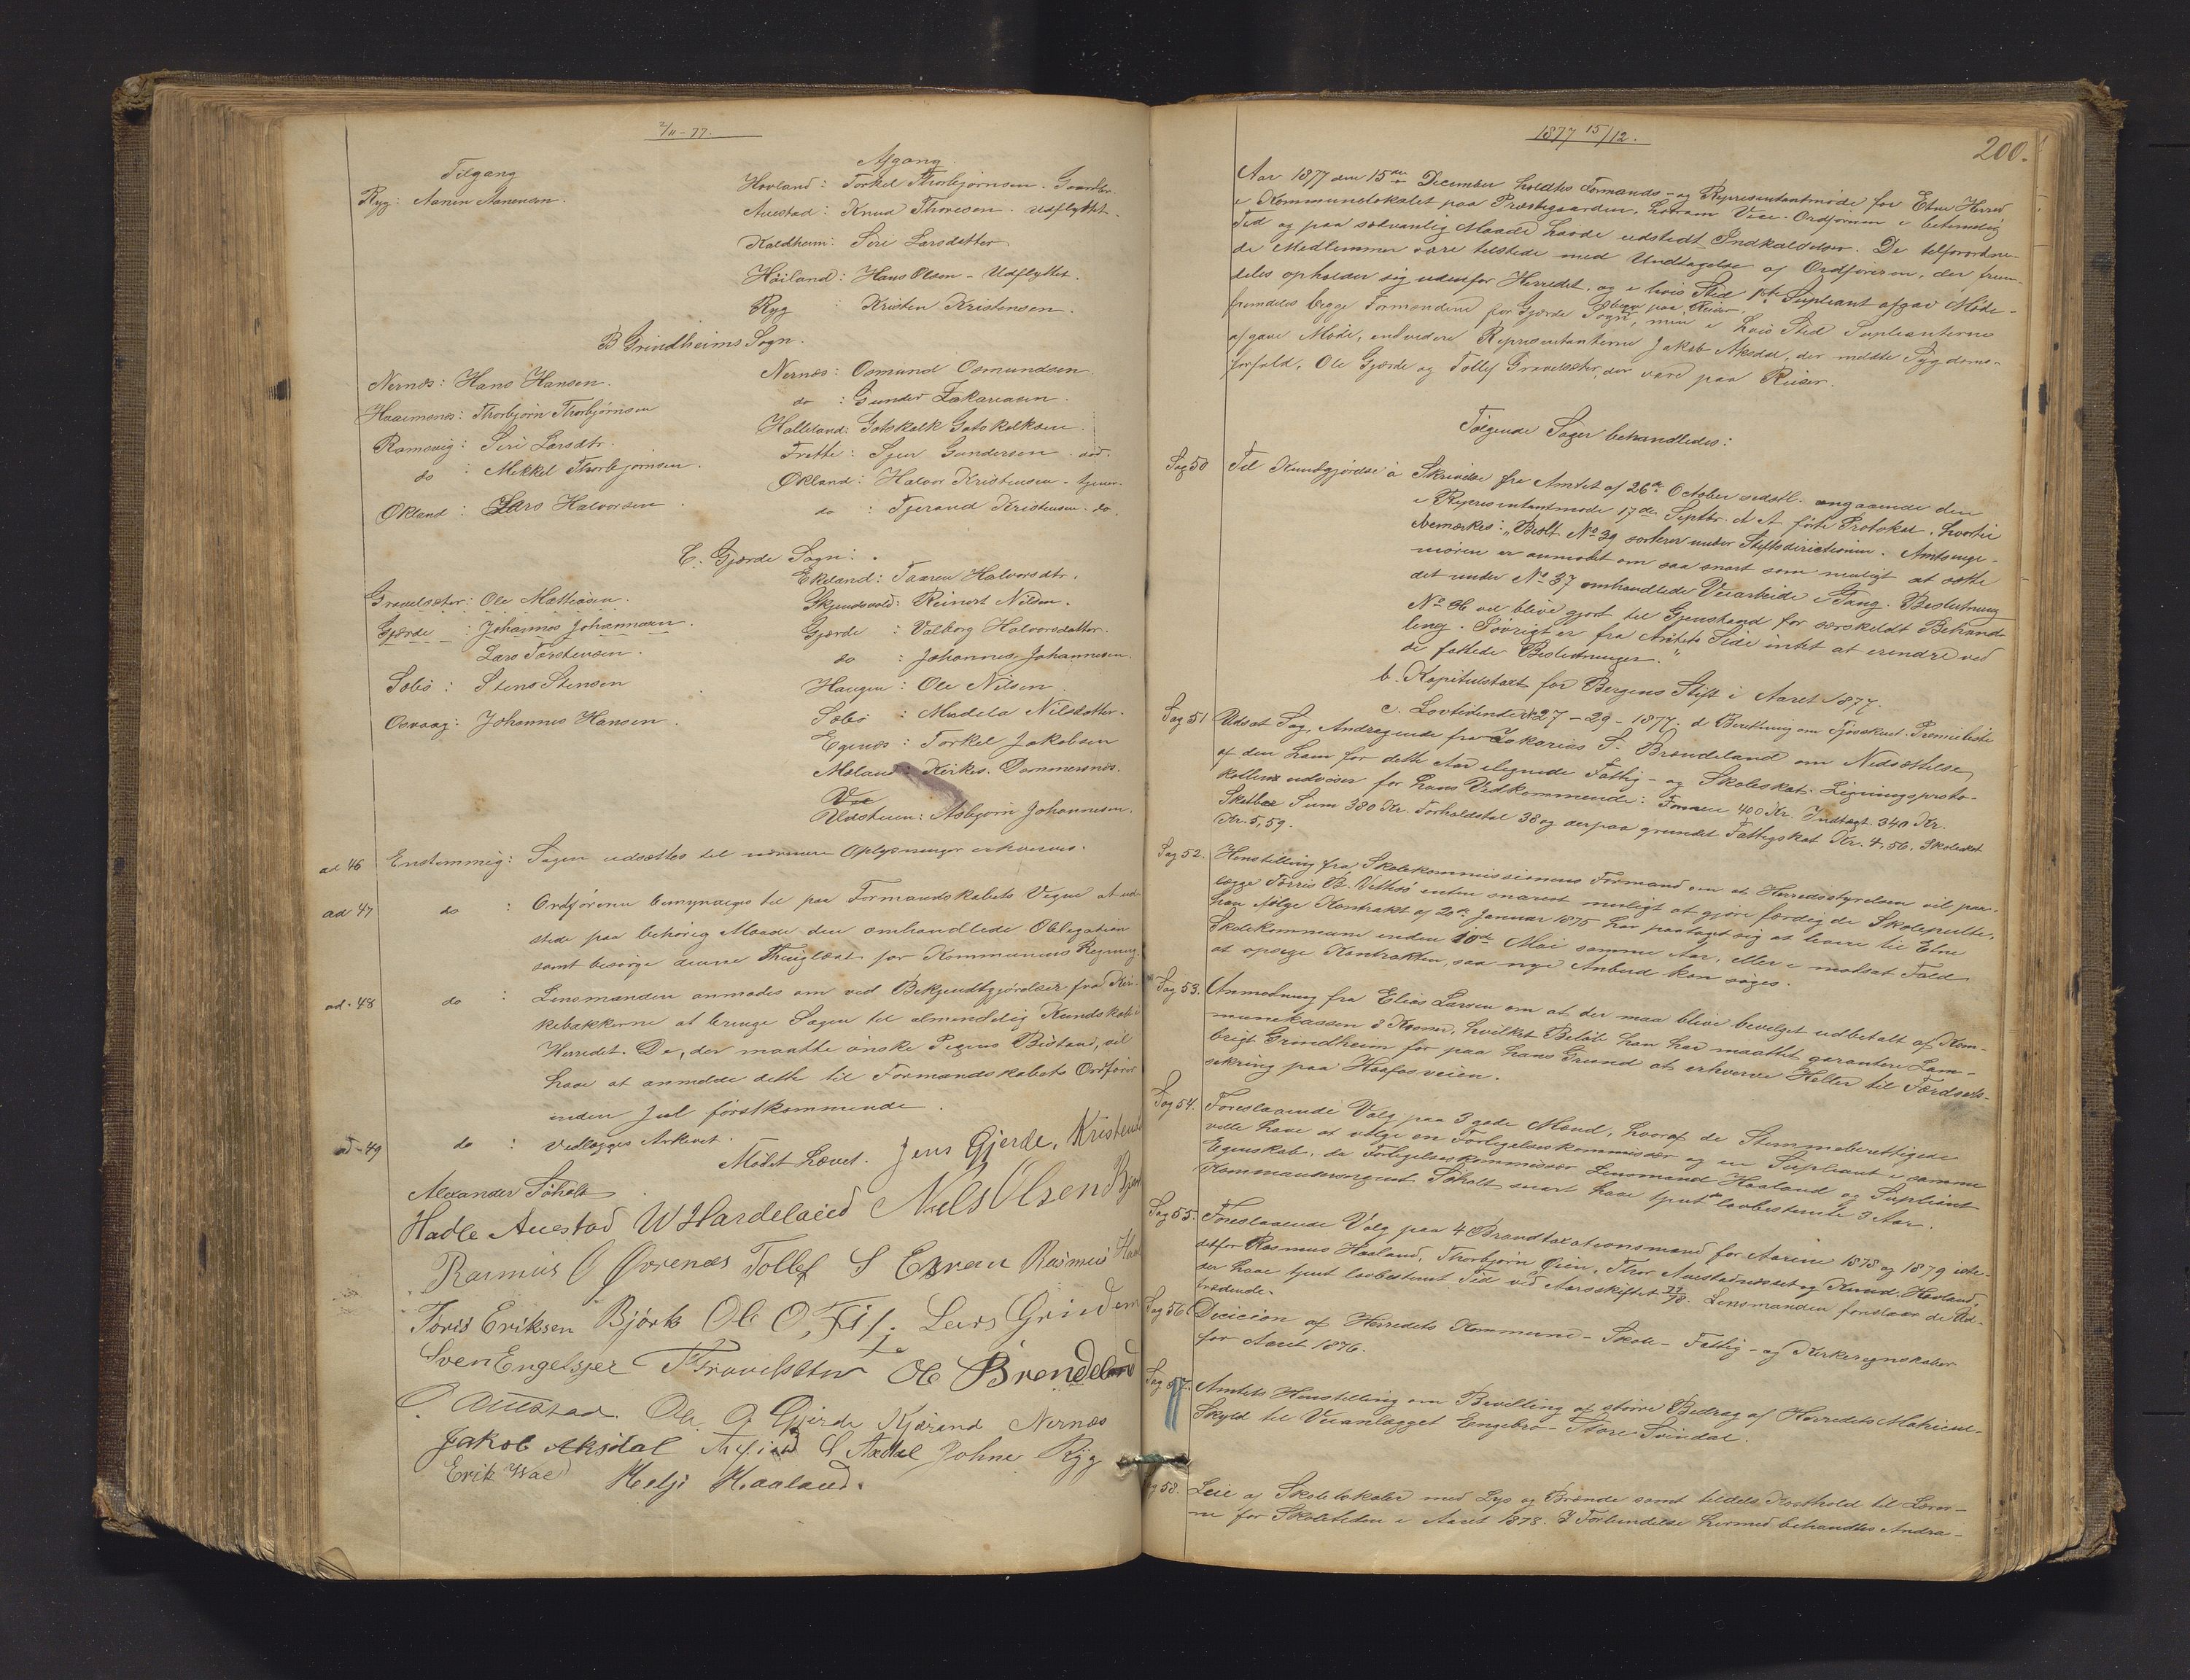 2/11-77.
Tilgang
Afgang.
Ryg: Aanen Aanensen.
Hovland: Torkel Thorbjørnsen. Gaardbr.
Auestad: Knud Thoresen. Udflyttet.
Kaldheim: Siri Larsdatter.
Høiland: Hans Olsen - Udflyttet.
Ryg : Kristen Kristensen.
B Grindheims Sogn.
Nernæs: Hans Hansen.
Nernæs: Osmund Osmundsen
Haaimsnes: Thorbjørn Thorbjørnsen
do : Gunder Zakariasen.
Ramsvig: Siri Larsdtr.
Halleland: Gotskalk Gotskalksen.
do : Mikkel Thorbjørnsen.
Frette: Sjur Gundersen
Økland: Lars Halvorsen
Økland: Halvor Kristensen -
do : Tjerand Kristensen - do.
C. Gjærde Sogn:
Ekeland: Taaren Halvorsdtr.
Gravelsæter: Ole Mathiasen.
Skjendsvold: Reinert Nilsen.
Gjærde : Johannes Johannesen.
Gjærde : Valborg Halvorsdatter.
Lars Torstensen.
do : Johannes Johannesen.
Sæbø : Stens Stensen
Haugen: Ole Nilsen
Osvaag: Johannes Hansen.
Sæbø : Madela Nilsdatter.
Egenæs: Torkel Jakobsen
Mæland: Kirkes. Dommersnæs.
: Asbjørn Johannesen.
ad 46 Enstemmig: Sagen udsættes til nærmere Oplysninger erhverves.
ad 47 do : Ordføreren bemyndiges til paa Formandskabets Vegne at ud-
stede paa behørig Maade den omhandlede Obligation
samt besørge denne Thinglæst for Kommunens Regning.
ad. 48 do : Lensmanden anmodes om ved Bekjendtgjørelser fra Kir-
kebakkerne at bringe Sagen til almindelig Kundskab i
Herredet. De, der maatte ønske Pigens Bistand, vil
have at anmelde dette til Formandskabets Ordfører
inden Jul førstkommende.
ad-49 do : Vedlægges Arkivet.
Mødet hævet. Jens Gjerde, Kristen
Alexander Søholt
Hadle Auestad W Hardeland Nels Olsen
Rasmus O Øvrenæs Tollef S Rasmus
Toris Eriksen Bjørk Ole O, Lars
Sven Engelsjer T Gravelsæter Ole Brendeland
O. Auestad. Ole O Gjerde Kjærand Nernæs
Jakob Aksdal S Johne Ryg
Erik Helje Haaland.
1877 15/12.
200.
Aar 1877 den 15de December holdtes Formands- og Repræsentantmøde for Etne Herred
i Kommunelokalet paa Præstegaarden, hvorom Vice-Ordføreren i betimelig
Tid og paa sædvanlig Maade havde udstedt Indkaldelser. De tilforordne-
de Medlemmer vare tilstede med Undtagelse af Ordføreren, der frem-
deles opholder sig udenfor Herredet, og i hvis Sted 1ste Supleant afgav Møde -
fremdeles begge Formændene for Gjærde Sogn, paa Reiser, men i hvis Sted Supleanterne
afgave Møde, endvidere Repræsentanterne Jakob Aksdal, der meldte Sygdoms-
forfald, Ole Gjærde og Tollef Gravelsæter, der vare paa Reiser.
Følgende Sager behandledes:
Sag 50 Til Kundgjørelse a Skrivelse fra Amtet af 26de October sidstl. angaaende den
i Repræsentantmøde 17de Septbr. d. A. førte Protokol, hvortil
bemærkes: "Beslt. No 39 sorterer under Stiftsdirectionen. Amtsinge-
niøren er anmodet om saa snart som muligt at sætte
det under No 37 omhandlede Veiarbeide i Gang. Beslutning
No 36 vil blive gjort til Gjenstand for særskildt Behand-
ling. Iøvrigt er fra Amtets Side intet at erindre ved
de fattede Beslutninger."
b. Kapitelstaxt for Bergens Stift i Aaret 1877.
c. Lovtidende 27-29-1877. d Beretning om Fjøsskurt Præmieliste
Sag 51 Udsat Sag, Andragende fra Zakarias S. Brændeland om Nedsættelse
af den ham for dette Aar ilignede Fattig- og Skoleskat. Ligningsproto-
kollen udviser for hans Vedkommende: Formue 400 Kr. Indtægt 340 Kr.
Skatbar Sum 380 Kr. Forholdstal 38 og derpaa grundet Fattigskat Kr. 4,56. Skoleskat
Kr. 5,59.
Sag 52. Henstilling fra Skolekommissionens Formand om at Herredsstyrelsen vil paa-
lægge Torris B. Vethsø enten snarest muligt at gjøre færdig de Skolepulte,
han ifølge Kontrakt af 20de Januar 1875 har paataget sig at levere til Etne
Skolekommune inden 10de Mai samme Aar, eller i modsat Fald
at opsige Kontrakten, saa nye Anbud kan søges.
Sag 53. Anmodning fra Elias Larsen om at der maa blive bevilget udbetalt af Kom-
munekassen 8 Kroner, hvilket Beløb han har maattet garantere Lam-
brigt Grindheim for paa hans Grund at erhverve Heller til Færdsels-
sikring paa Haafosveien.
Sag 54. Foreslaaende Valg paa 3 gode Mænd, hvoraf de Stemmeberettigede
ville have at vælge en Forligelseskommissær og en Supleant i samme
Egenskab, da Forligelseskommissær Lensmand Haaland og Supleant
Søholt snart have tjent de lovbestemte 3 Aar.
Sag 55. Foreslaaende Valg paa 4 Brandtaxationsmænd for Aarene 1878 og 1879 iste-
detfor Rasmus Haaland, Thorbjørn Øien, Thor Auestadnæsset og Knud Hovland,
der have tjent lovbestemt Tid ved Aarsskiftet 77/78. Lensmanden foreslaar de Ud-
trædende.
Sag 56 Decision af Herredets Kommune- Skole- Fattig- og Kirkeregnskaber
for Aaret 1876.
Sag 57. Amtets Henstilling om Bevilling af større Bidrag af Herredets Matricul-
Skyld til Veianlægget Engebro - Store Svindal.
Sag 58. Leie af Skolelokaler med Lys og Brænde samt tildels Kosthold til Lærer-
ne for Skoletiden i Aaret 1878. I Forbindelse hermed behandles Andra-